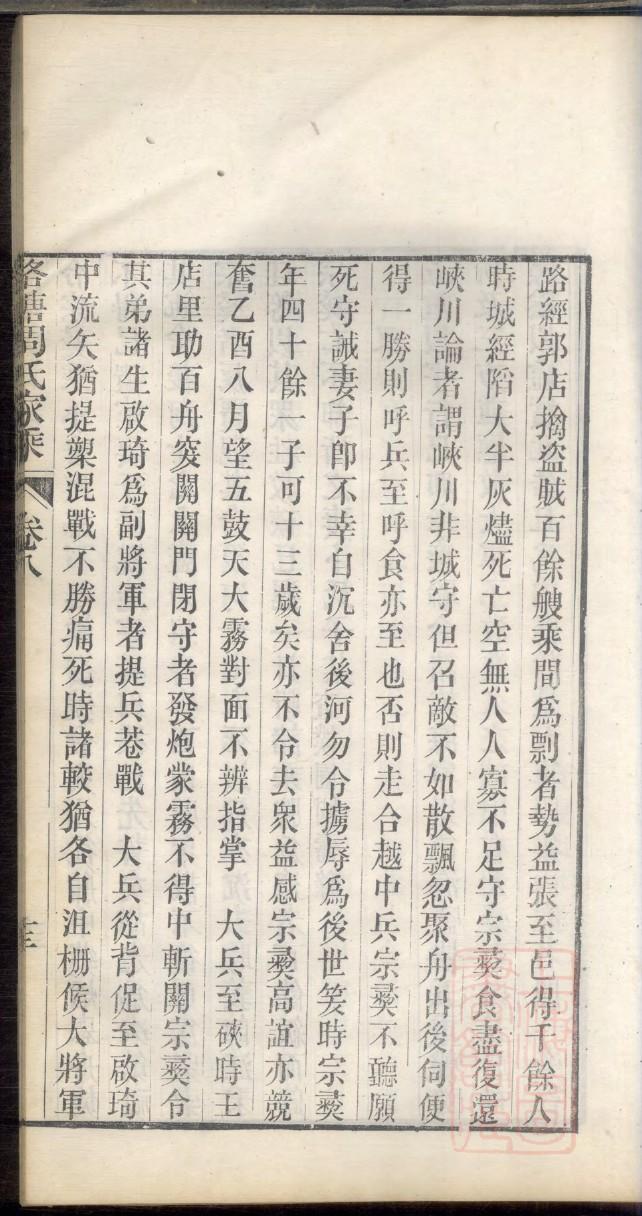 路經郭店擒盜賊百餘艘乘間爲剽者勢益張至邑得千餘人
時城經陷大半灰燼死亡空無人人寡不足守宗彝食盡復還
峽川論者謂峽川非城守但召敵不如散飄忽聚舟出後伺便
得一勝則呼兵至呼食亦至也否則走合越中兵宗彝不聽願
死守誡妻子卽不幸自沉舍後河勿令擄辱爲後世笑時宗彝
年四十餘一子可十三歲矣亦不令去衆益感宗彝高誼亦競
奮乙酉八月望五鼓天大霧對面不辨指掌　大兵至硤時王
店里助百舟突關關門閉守者發炮蒙霧不得中斬關宗彝令
其弟諸生啟琦爲副將軍者提兵巷戰　大兵從背促至啟琦
中流矢猶提槊混戰不勝痛死時諸較猶各自沮柵候大將軍
洛塘周氏家乘　卷八　十三